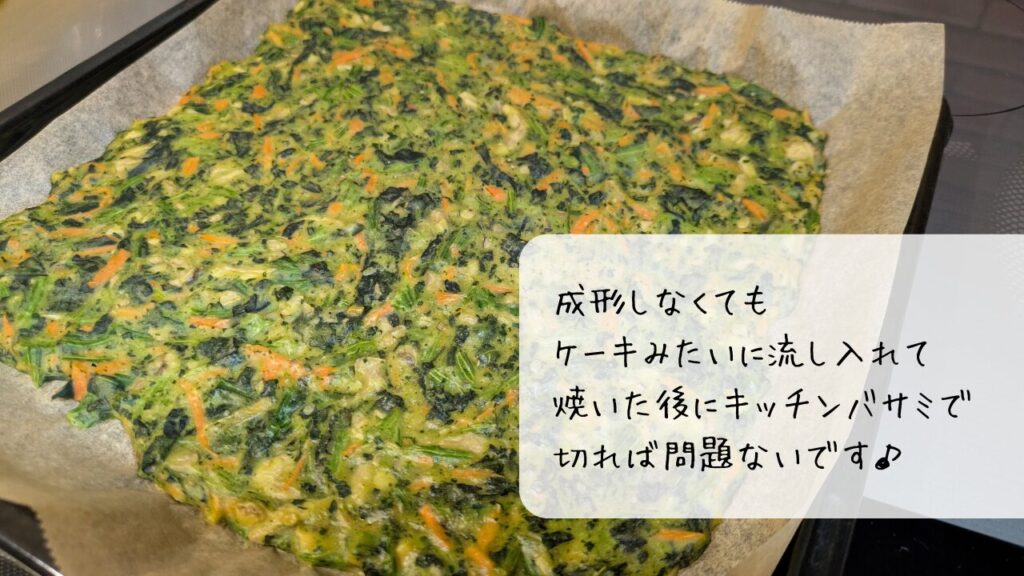 成形しなくても
ケーキみたいに流し入れて
焼いた後にキッチンバサミで
切れば問題ないです♪